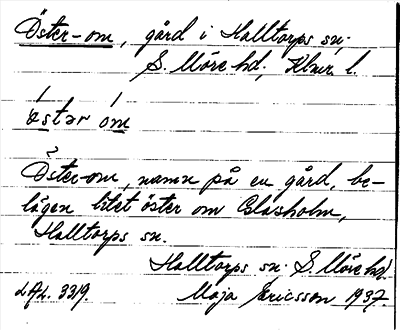 Öster-om, gård i Halltorps sn,
S. Möre hd, Klmr l.
östər óm
Öster-om, namn på en gård, be-
lägen litet öster om Glasholm,
Halltorps sn.
Halltorps sn. S. Möre hd.
LAL. 3319. Maja Ericsson 1937.